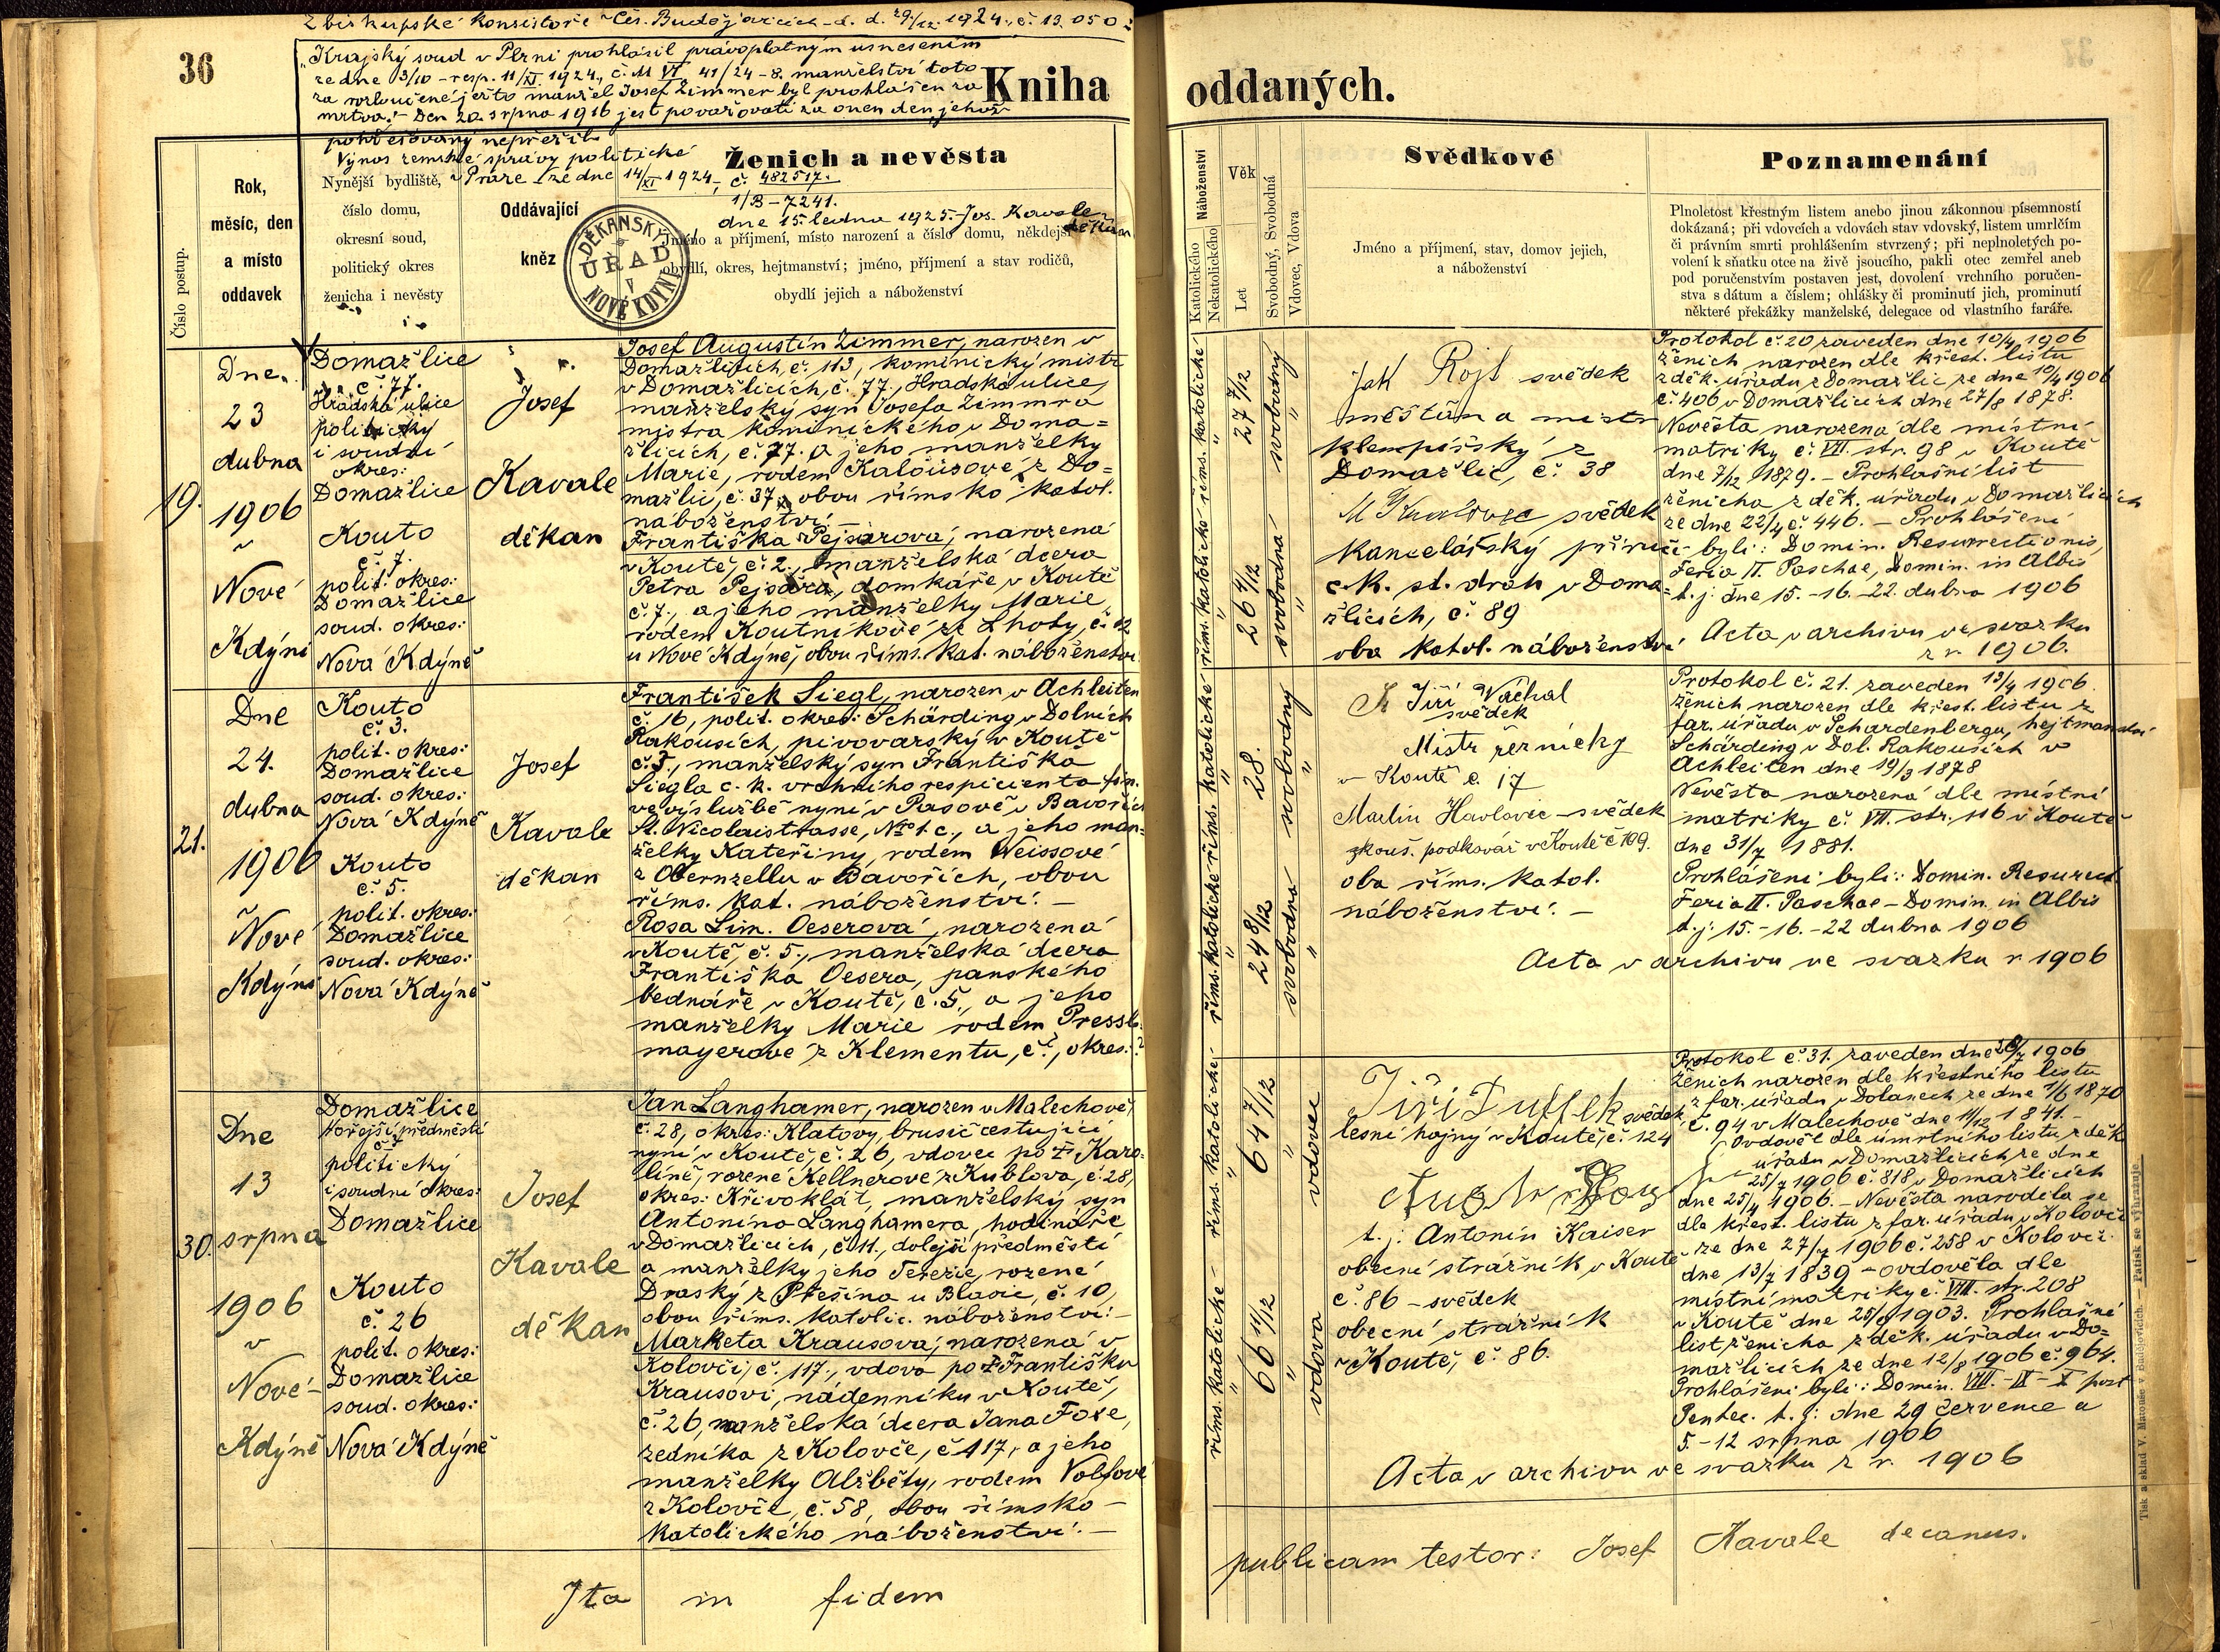 Z biskupské konsistoře v Čes. Budějovicích d. d. 29./12. 1924., č. 13.050
36
"Krajský soud v Plzni prohlásil právoplatným usnesením
ze dne 3/10 - resp. 11/XI. 1924., č. M VI 41/24-8, manželství toto
za rozloučené, ježto manžel Josef Zimmer byl prohlášen za
mrtva." Den 20. srpna 1916 jest považovati za onen den, jehož
pohřešovaný nepřežil.
Výnos zemské správy politické
v Praze ze dne 14/XI 1924, č. 482517.
1/B-7241.
dne 15. ledna 1925. Jos. Kavale
děkan
Kniha oddaných.
Číslo postup.
Rok,
měsíc, den
a místo
oddavek
Nynější bydliště,
číslo domu,
okresní soud,
politický okres
ženicha i nevěsty
Oddávající
kněz
DĚKANSKÝ
ÚŘAD
V
NOVÉ KDYNI
Ženich a nevěsta
Jméno a příjmení, místo narození a číslo domu, někdejší
obydlí, okres, hejtmanství; jméno, příjmení a stav rodičů,
obydlí jejich a náboženství
Náboženství
Katolického
Nekatolického
Věk
Let
Svobodný, Svobodná
Vdovec, Vdova
Svědkové
Jméno a příjmení, stav, domov jejich,
a náboženství
Poznamenání
Plnoletost křestným listem anebo jinou zákonnou písemností
dokázaná; při vdovcích a vdovách stav vdovský, listem umrlčím
či právním smrti prohlášením stvrzený; při neplnoletých po-
volení k sňatku otce na živě jsoucího, pakli otec zemřel aneb
pod poručenstvím postaven jest, dovolení vrchního poručen-
stva s dátum a číslem; ohlášky či prominutí jich, prominutí
některé překážky manželské, delegace od vlastního faráře.
19.
Dne
23
dubna
1906
v
Nové
Kdýni
Domažlice
č. 77.
Hradská ulice
politický
i soudní
okres:
Domažlice
Kouto
č. 7.
polit. okres:
Domažlice
soud. okres:
Nová Kdýně
Josef
Kavale
děkan
Josef Augustin Zimmer, narozen v
Domažlicích, č. 113, kominický mistr
v Domažlicích, č. 77., Hradská ulice,
manželský syn Josefa Zimmra
mistra kominického v Doma=
žlicích, č. 77. a jeho manželky
Marie, rodem Kalousové z Do=
mažlic, č. 37., obou římsko katol.
náboženství. -
Františka Pejsarová, narozená
v Koutě, č. 2., manželská dcera
Petra Pejsara, domkáře v Koutě
č. 7., a jeho manželky Marie,
rodem Koutníkové ze Lhoty, č. 12
u Nové Kdýně, obou řims. kat. náboženství
řims. katolické
27 7/12
svobodný
řims. katolické
26 4/12
svobodná
Jak Rojt svědek
měšťan a mistr
klempířský z
Domažlic, č. 38
svědek
kancelářský příručí
c. k. st. drah v Doma=
žlicích, č. 89
oba katol. náboženství
Protokol č. 20 zaveden dne 10/4 1906
ženich narozen dle křest. listu
z děk. úřadu z Domažlic ze dne 10/4 1906
č. 406 v Domažlicích dne 27/8 1878.
Nevěsta narozena dle místní
matriky č. VII. str. 98 v Koutě
dne 7/12 1879. - Prohlašní list
ženicha z děk. úřadu v Domažlicích
ze dne 22/4 č. 446. - Prohlášeni
byli: Domin. Resurrectionis,
Feria II. Paschae, Domin. in Albis
t. j. dne 15.-16.-22. dubna 1906
Acta v archivu ve svazku
z r. 1906.
21.
Dne
24.
dubna
1906
v
Nové
Kdýni
Kouto
č. 3.
polit. okres:
Domažlice
soud. okres:
Nová Kdýně
Kouto
č. 5.
polit. okres:
Domažlice
soud. okres:
Nová Kdýně
Josef
Kavale
děkan
František Siegl, narozen v Achleiten
č. 16, polit. okres: Schärding v Dolních
Rakousích, pivovarský v Koutě
č. 3, manželský syn Františka
Siegla c. k. vrchního respicienta fin.
ve výslužbě nyní v Pasově v Bavořích
St. Nicolaistrasse, No 1. c., a jeho man=
želky Kateřiny, rodem Weissové
z Obernzellu v Bavořích, obou
řims. kat. náboženství. -
Rosa Lim. Oeserová, narozená
v Koutě, č. 5., manželská dcera
Františka Oesera, panského
bednáře v Koutě, č. 5., a jeho
manželky Marie rodem Pressl-
mayerové z Klementu, č.?, okres:?
řims. katolické
28.
svobodný
řims. katolické
24 8/12
svobodná
Jiří Váchal
svědek
Mistr řeznický
v Koutě č. 17
Martin Havlovic - svědek
zkouš. podkovář v Koutě č 109.
oba řims. katol.
náboženství. -
Protokol č. 21. zaveden 13/4 1906.
Ženich narozen dle křest. listu z
far. úřadu v Schardenbergu, hejtmanství
Schärding v Dol. Rakousích v
Achleiten dne 19/3 1878
Nevěsta narozená dle místní
matriky č. VII. str. 116 v Koutě
dne 31/7 1881.
Prohlášeni byli: Domin. Resurrect.
Feria II. Paschae - Domin. in Albis
t. j. 15.-16.-22 dubna 1906
Acta v archivu ve svazku r 1906
30.
Dne
13
srpna
1906
v
Nové-
Kdýně
Domažlice
Hořejší předměstí
č. 7
politický
i soudní okres:
Domažlice
Kouto
č. 26
polit. okres:
Domažlice
soud. okres:
Nová Kdýně
Josef
Kavale
děkan
Jan Langhamer, narozen v Malechově,
č. 28, okres: Klatovy, brusič cestující
nyní v Koutě, č. 26, vdovec po † Karo-
líně, rozené Kellnerové z Kublova, č. 28,
okres: Křivoklát, manželský syn
Antonína Langhamera, hodináře
v Domažlicích, č. 11., dolejší předměstí
a manželky jeho Terezie, rozené
Draský z Přešína u Blovic, č. 10,
obou řims. katolic. náboženství. -
Marketa Krausová, narozená v
Kolovči, č. 117., vdova po † Františku
Krausovi, nádenníku v Koutě,
č. 26, manželská dcera Jana Foxe,
zedníka z Kolovče, č 117., a jeho
manželky Alžběty, rodem Volfové
z Kolovče, č. 58, obou římsko-
katolického náboženství. -
řims. katolické
64 7/12
vdovec
řims. katolické
66 11/12
vdova
Jiří Tuffek svědek
lesní hajný v Koutě, č. 124
t. j. Antonín Kaiser
obecní strážník v Koutě
č. 86 - svědek
obecní strážník
v Koutě, č. 86.
Protokol č. 31. zaveden dne 28/7 1906
Ženich narozen dle křestního listu
z far. úřadu v Dolanech ze dne 1/6 1870
č. 94 v Malechově dne 11/12 1841. -
Ovdověl dle úmrtního listu z děk.
úřadu v Domažlicích ze dne
25/7 1906 č. 818 v Domažlicích
dne 25/4 1906. - Nevěsta narodila se
dle křest. listu z far. úřadu v Kolovči
ze dne 27/7 1906 č. 258 v Kolovči
dne 13/7 1839 - ovdověla dle
místní matriky č. VIII. str. 208
v Koutě dne 25/9 1903. Prohlašní
list ženicha z děk. úřadu v Do=
mažlicích ze dne 12/8 1906 č. 964.
Prohlášeni byli: Domin. VIII. - IX - X post
Pentec. t. j: dne 29 července a
5.-12 srpna 1906
Acta v archivu ve svazku z r. 1906
Ita in fidem publicam testor: Josef Kavale decanus.
Tisk a sklad V. Matouše v Budějovicích. - Patisk se vyhražuje.